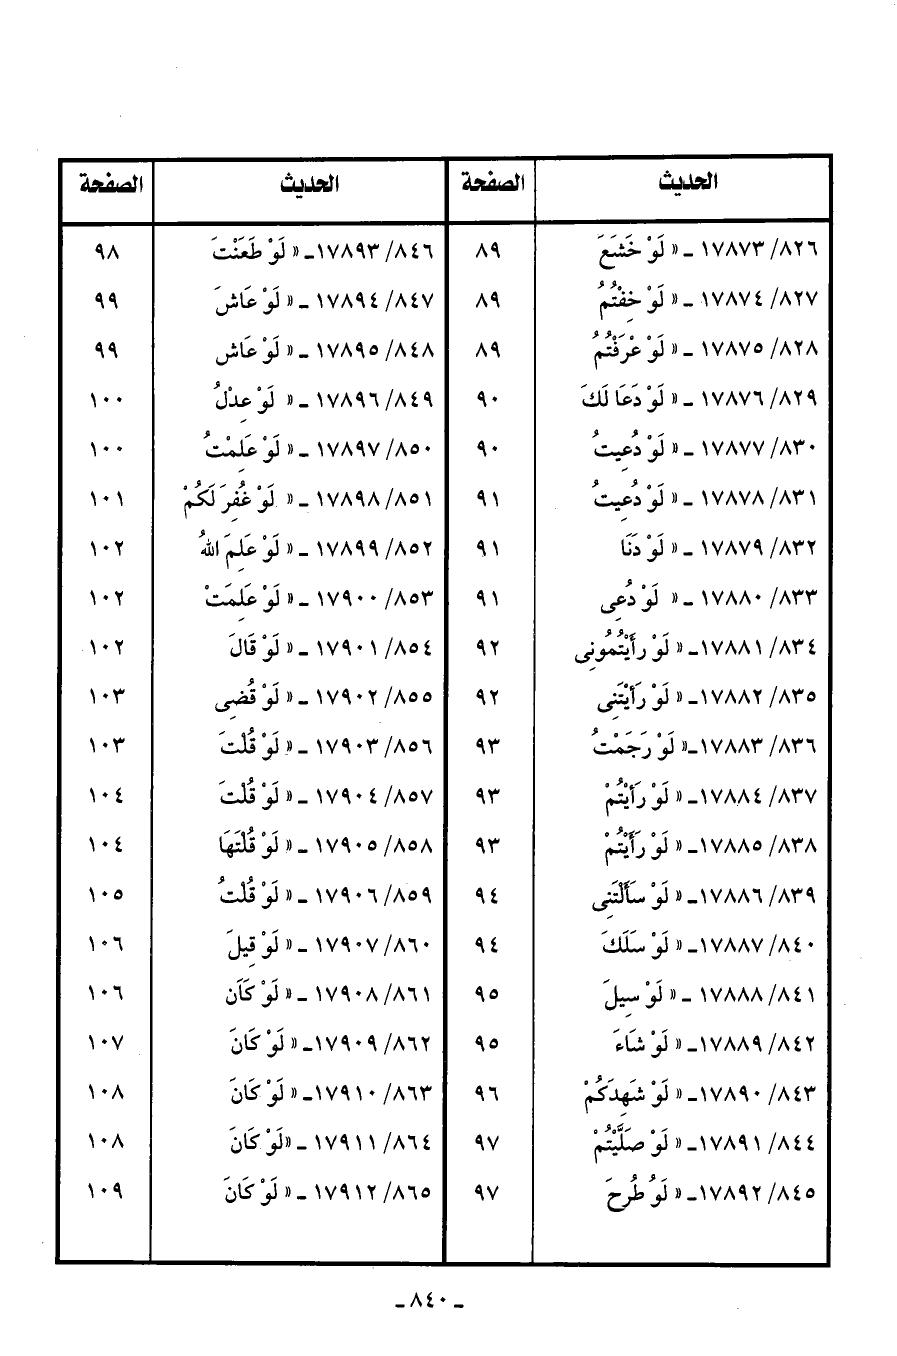 الحديث الصفحة الحديث الصفحة
٨٢٦/ ١٧٨٧٣ ـ « لَوْ خَشَعَ ٨٩ ٨٤٦/ ١٧٨٩٣ـ « لَوْ طَعَنْتَ ٩٨
٨٢٧/ ١٧٨٧٤ ـ « لَوْ خِفْتُمُ ٨٩ ٨٤٧/ ١٧٨٩٤ ـ « لَوْ عَاشَ ٩٩
٨٢٨/ ١٧٨٧٥ ـ « لَوْ عَرَفْتُمُ ٨٩ ٨٤٨/ ١٧٨٩٥ ـ « لَوْ عَاش ٩٩
٨٢٩/ ١٧٨٧٦ ـ « لَوْ دَعَا لَكَ ٩٠ ٨٤٩/ ١٧٨٩٦ ـ « لَوْ عِدْلُ ١٠٠
٨٣٠/ ١٧٨٧٧ ـ « لَوْ دُعِيتُ ٩٠ ٨٥٠/ ١٧٨٩٧ ـ « لَوْ عَلِمْتُ ١٠٠
٨٣١/ ١٧٨٧٨ ـ « لَوْ دُعِيتُ ٩١ ٨٥١/ ١٧٨٩٨ ـ « لَوْ غُفِرَ لَكُمْ ١٠١
٨٣٢/ ١٧٨٧٩ ـ « لَوْ دَنَا ٩١ ٨٥٢/ ١٧٨٩٩ ـ « لَوْ عَلِمَ اللهُ ١٠٢
٨٣٣/ ١٧٨٨٠ ـ « لَوْ دُعِى ٩١ ٨٥٣/ ١٧٩٠٠ ـ « لَوْ عَلِمَتْ ١٠٢
٨٣٤/ ١٧٨٨١ـ « لَوْ رأَيْتُمُونِى ٩٢ ٨٥٤/ ١٧٩٠١ ـ « لَوْ قَالَ ١٠٢
٨٣٥/ ١٧٨٨٢ـ « لَوْ رَأَيْتَنِى ٩٢ ٨٥٥/ ١٧٩٠٢ ـ « لَوْ قُضِى ١٠٣
٨٣٦/ ١٧٨٨٣ـ« لَوْ رَجَمْتُ ٩٣ ٨٥٦/ ١٧٩٠٣ ـ « لَوْ قُلْتَ ١٠٣
٨٣٧/ ١٧٨٨٤ـ « لَوْ رَأَيْتُمْ ٩٣ ٨٥٧/ ١٧٩٠٤ ـ « لَوْ قُلْتَ ١٠٤
٨٣٨/ ١٧٨٨٥ـ « لَوْ رَأَيْتُمْ ٩٣ ٨٥٨/ ١٧٩٠٥ ـ « لَوْ قُلْتَهَا ١٠٤
٨٣٩/ ١٧٨٨٦ـ « لَوْ سَأَلْتَنِى ٩٤ ٨٥٩/ ١٧٩٠٦ ـ « لَوْ قُلْتُ ١٠٥
٨٤٠/ ١٧٨٨٧ـ « لَوْ سَلَكَ ٩٤ ٨٦٠/ ١٧٩٠٧ ـ « لَوْ قِيلَ ١٠٦
٨٤١/ ١٧٨٨٨ ـ « لَوْ سِيلَ ٩٥ ٨٦١/ ١٧٩٠٨ ـ « لَوْ كَانَ ١٠٦
٨٤٢/ ١٧٨٨٩ـ « لَوْ شَاءَ ٩٥ ٨٦٢/ ١٧٩٠٩ـ « لَوْ كَانَ ١٠٧
٨٤٣/ ١٧٨٩٠ـ « لَوْ شَهِدَكُمْ ٩٦ ٨٦٣/ ١٧٩١٠ـ « لَوْ كَانَ ١٠٨
٨٤٤/ ١٧٨٩١ـ « لَوْ صَلَّيْتُمْ ٩٧ ٨٦٤/ ١٧٩١١ ـ «لَوْ كَانَ ١٠٨
٨٤٥/ ١٧٨٩٢ـ « لَوُ طُرِحَ ٩٧ ٨٦٥/ ١٧٩١٢ ـ « لَوْ كَانَ ١٠٩
ـ ٨٤٠ ـ